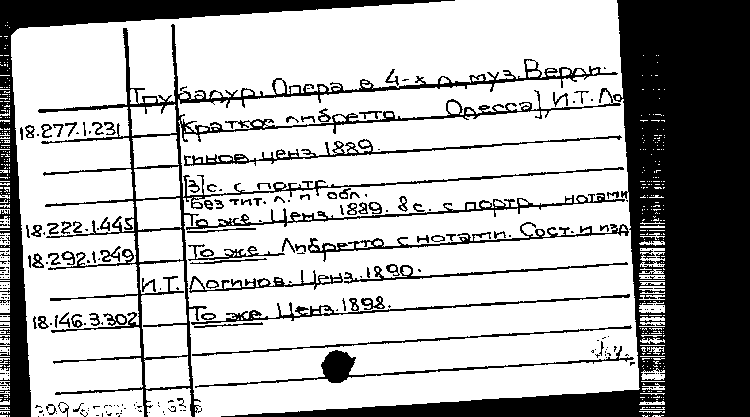 Трубадур. Опера в 4-х д., муз. Верди.
18.277.1.231 [Краткое либретто. Одесса], И.Т. Ло
гинов, ценз. 1889.
[3]с. с портр.
Без тит. л. и обл.
18.222.1.445 То же. Ценз. 1889. 8с. с портр., нотами
18.292.1.249 То же. Либретто с нотами. Сост. и изд.
И.Т. Логинов. Ценз. 1890.
18.146.3.302 То же. Ценз. 1898.